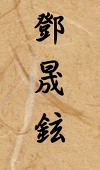 鄧晟鉉